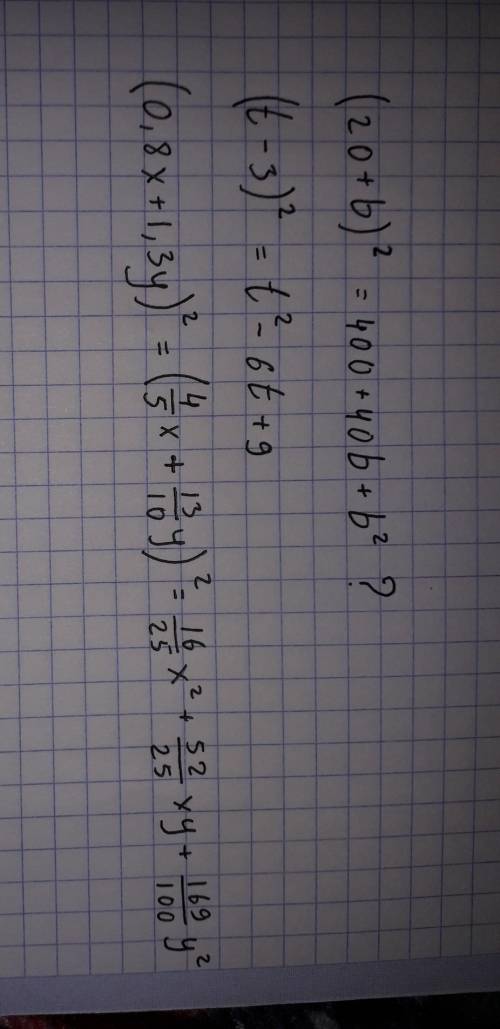 (20+b)² = 400+40b+b² ?
(t-3)² = t² - 6t+9
(0,8x+1,3y)² = (4/5 x + 13/10 y)² = 16/25 x² + 52/25 xy + 169/100 y²